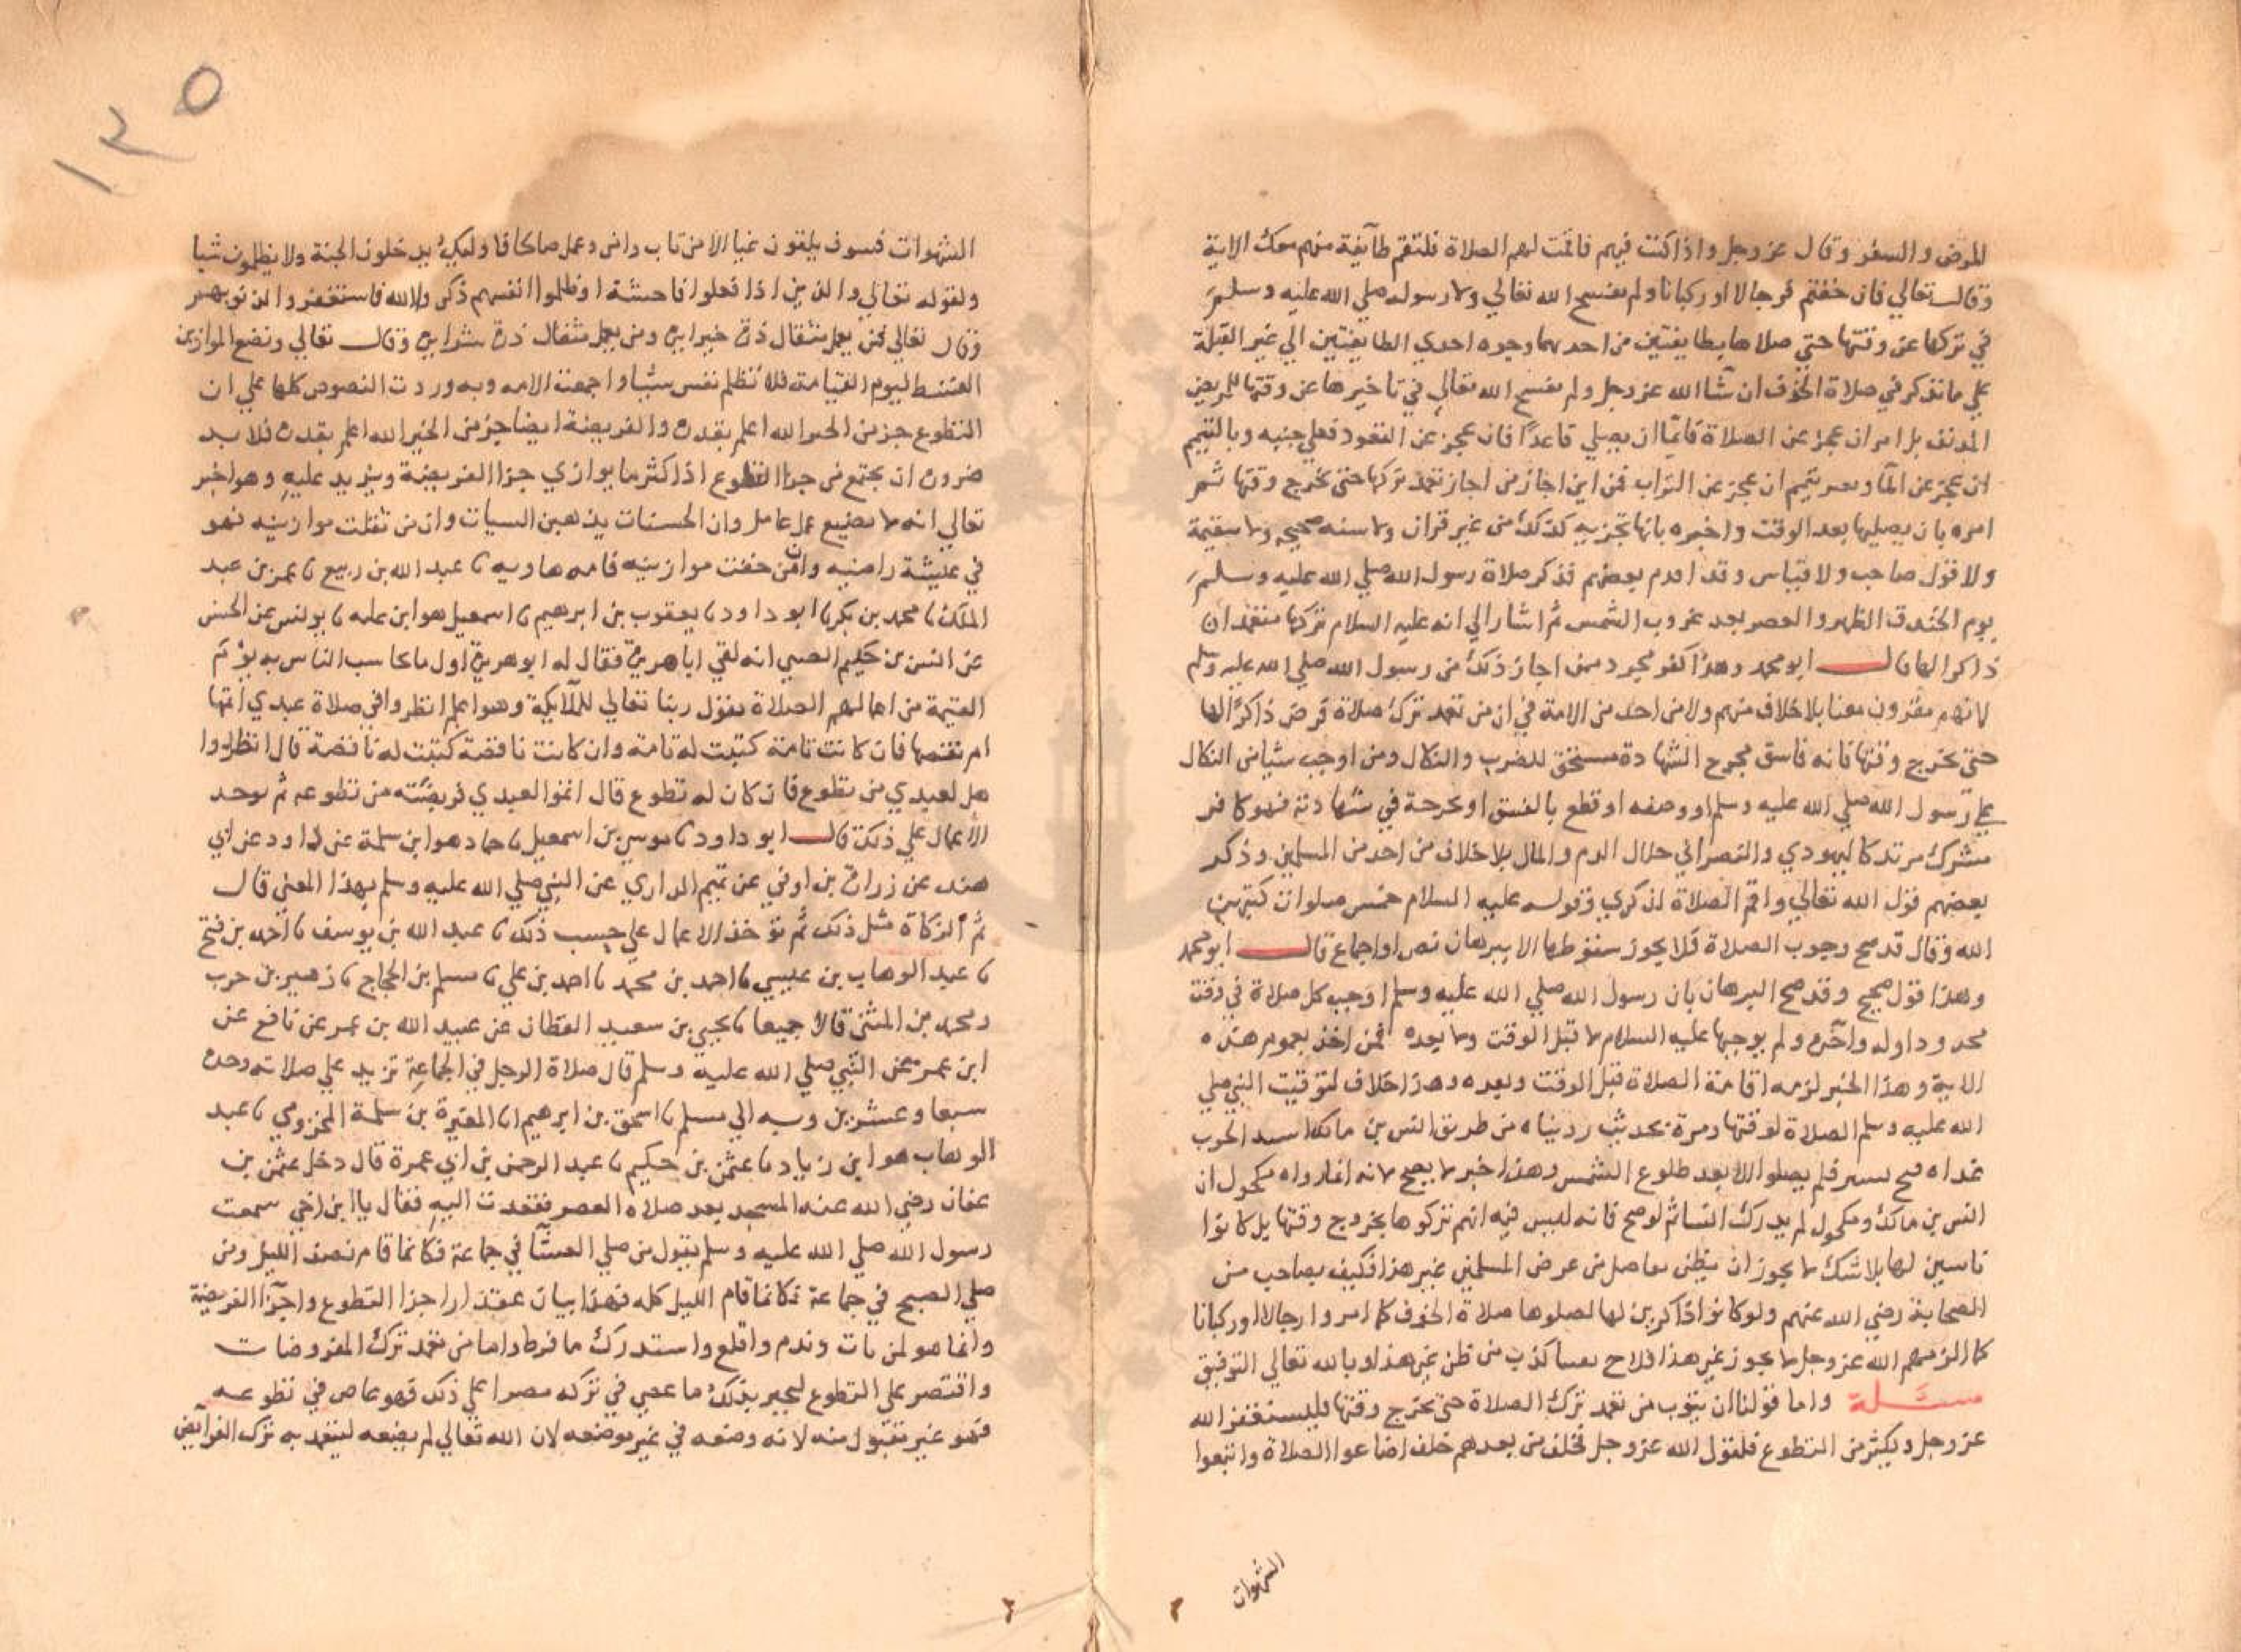 المرض والسفر وقال عز وجل واذا كنت فيهم فاقمت لهم الصلاة فلتقم طآيفة منهم معك الاية
وقال تعالي فان خفتم فرجالا او ركبانا ولم يفسح الله تعالي ولا رسوله صلي الله عليه وسلم
في تركها عن وقتها حتي صلاها بطايفتين من احدهما وجوه احدي الطايفتين الي غير القبلة
علي ما نذكر في صلاة الخوف ان شآ الله عز وجل ولم يفسح الله تعالي في تاخيرها عن وقتها للمريض
المدنف بل امر ان عجز عن الصلاة قائما ان يصلي قاعدًا فان عجز عن القعود فعلي جنبه وبالتيمم
ان عجز عن المآ وبغير تيمم ان عجز عن التراب فمن اين اجاز من اجاز تعمد تركها حتي تخرج وقتها ثم
امره بان يصليها بعد الوقت واخبره بانها تجزيه كذلك من غير قران ولا سنه صحيحه ولا سقيمة
ولا قول صاحب ولا قياس وقد اقدم بعضهم فذكر صلاة رسول الله صلي الله عليه وسلم
يوم الخندق الظهر والعصر بعد غروب الشمس ثم اشار الي انه عليه السلام تركها متعمدا ان
ذاكرا لها قال ابو محمد وهذا كفر مجرد ممن اجاز ذلك من رسول الله صلي الله عليه وسلم
لانهم مقرون معنا بلا خلاف منهم ولا من احد من الامة في ان من تعمد ترك صلاة فرض ذاكرًا لها
حتي تخرج وقتها فانه فاسق مجرح الشهادة مستحق للضرب والنكال ومن اوجب شيا من النكال
علي رسول الله صلي الله عليه وسلم او وصفه او قطع بالفسق او بجرحة في شهادته فهو كافر
مشرك مرتد كاليهودي والنصراني حلال الدم والمال بلا خلاف من احد من المسلمين وذكر
بعضهم قول الله تعالي واقم الصلاة لذكري وقوله عليه السلام خمس صلوات كتبهن
الله وقال قد صح وجوب الصلاة فلا يجوز سقوطها الا ببرهان نص او اجماع قال ابو محمد
وهذا قول صحيح وقد صح البرهان بان رسول الله صلي الله عليه وسلم اوجب كل صلاة في وقت
محدود اوله وآخره ولم يوجبها عليه السلام لا قبل الوقت ولا بعده فمن اخذ بعموم هذه
الاية وهذا الخبر لزمه اقامة الصلاة قبل الوقت وبعده وهذا خلاف لتوقيت النبي صلي
الله عليه وسلم الصلاة لوقتها ومرة بحديث رويناه من طريق انس بن مالك اشتد الحرب
غداه فتح تستر فلم يصلوا الا بعد طلوع الشمس وهذا خبر لا يصح لانه انما رواه مكحول ان
انس بن مالك ومكحول لم يدرك انسا ثم لو صح فانه ليس فيه انهم تركوها بخروج وقتها بل كانوا
ناسين لها بلا شك لا يجوز ان يظن بفاضل من عرض المسلمين غير هذا فكيف بصاحب من
الصحابة رضي الله عنهم ولو كانوا ذاكرين لها لصلوها صلاة الخوف كما امروا رجالا او ركبانا
كما الزمهم الله عز وجل لا يجوز غير هذا فلاح كذب من ظن غير هذا وبالله تعالي التوفيق
مسئلة واما قولنا ان يتوب من تعمد ترك الصلاة حتي تخرج وقتها لليستغفر الله
عز وجل ويكثر من التطوع فلقول الله عز وجل فخلف من بعدهم خلف اضاعوا الصلاة واتبعوا
الشهوات
١٢٥
الشهوات فسوف يلقون غيا الا من تاب وامن وعمل صالحا فاوليك يدخلون الجنة ولا يظلمون شيا
ولقوله تعالي والذين اذا فعلوا فاحشة او ظلموا انفسهم ذكروا الله فاستغفروا لذنوبهم
وقال تعالي فمن يعمل مثقال ذرة خيرا يره ومن يعمل مثقال ذرة شرا يره وقال تعالي ونضع الموازين
القسط ليوم القيامة فلا تظلم نفس شيا واجمعت الامه وبه وردت النصوص كلها علي ان
التطوع جز من الخير الله اعلم بقدره والفريضة ايضا جز من الخير الله اعلم بقدره فلا بد
ضرورة ان يجتمع من جزا التطوع اذا كثر ما يوازي جزا الفريضة ويزيد عليه وهو اخبر
تعالي انه لا يضيع عمل عامل وان الحسنات يذهبن السيات وان من ثقلت موازينه فهو
في عيشة راضيه وان من خفت موازينه فامه هاويه نا عبد الله بن ربيع نا عمر بن عبد
الملك نا محمد بن بكر نا ابو داود نا يعقوب بن ابرهيم نا اسمعيل هو ابن عليه نا يونس عن الحسن
عن انس بن حكيم الضبي انه لقي ابا هريرة فقال له ابو هريرة اول ما يحاسب الناس به يوم
القيمة من اعمالهم الصلاة يقول ربنا تعالي للملآيكة وهو اعلم انظروا في صلاة عبدي اتمها
ام نقصها فان كانت تامة كتبت له تامه وان كانت ناقصة كتبت له ناقصة قال انظروا
هل لعبدي من تطوع فان كان له تطوع قال اتموا لعبدي فريضته من تطوعه ثم توخذ
الاعمال علي ذلك قال ابو داود نا موسي بن اسمعيل نا حماد هو ابن سلمة عن داود عن ابي
هند عن زرارة بن اوفي عن تميم الداري عن النبي صلي الله عليه وسلم بهذا المعني قال
ثم الزكاة مثل ذلك ثم توخذ الاعمال علي حسب ذلك نا عبد الله بن يوسف نا احمد بن فتح
نا عبد الوهاب بن عيسي نا احمد بن محمد نا احمد بن علي نا مسلم بن الحجاج نا زهير بن حرب
ومحمد بن المثني قالا جميعا نا يحيي بن سعيد القطان عن عبيد الله بن عمر عن نافع عن
ابن عمر عن النبي صلي الله عليه وسلم قال صلاة الرجل في الجماعة تزيد علي صلاته وحده
سبعا وعشرين وبه الي مسلم نا اسحق بن ابرهيم انا المغيرة بن سلمة المخزومي نا عبد
الوهاب هو ابن زياد نا عثمن بن حكيم نا عبد الرحمن بن ابي عمرة قال دخل عثمن بن
عفان رضي الله عنه المسجد بعد صلاه العصر فقعدت اليه فقال يا ابن اخي سمعت
رسول الله صلي الله عليه وسلم يقول من صلي العشآ في جماعة فكانما قام نصف الليل ومن
صلي الصبح في جماعة فكانما قام الليل كله فهذا بيان مقدار اجزا التطوع واجزآ الفريضة
وانما هو لمن تاب وندم واقلع واستدرك ما فرط واما من تعمد ترك المفروضات
واقتصر علي التطوع ليجبر بذلك ما عصي في تركه مصرا علي ذلك فهو عاص في تطوعه
فهو غير مقبول منه لانه وضعه في غير موضعه لان الله تعالي لم يضعه ليتعمد به ترك الفرآيض